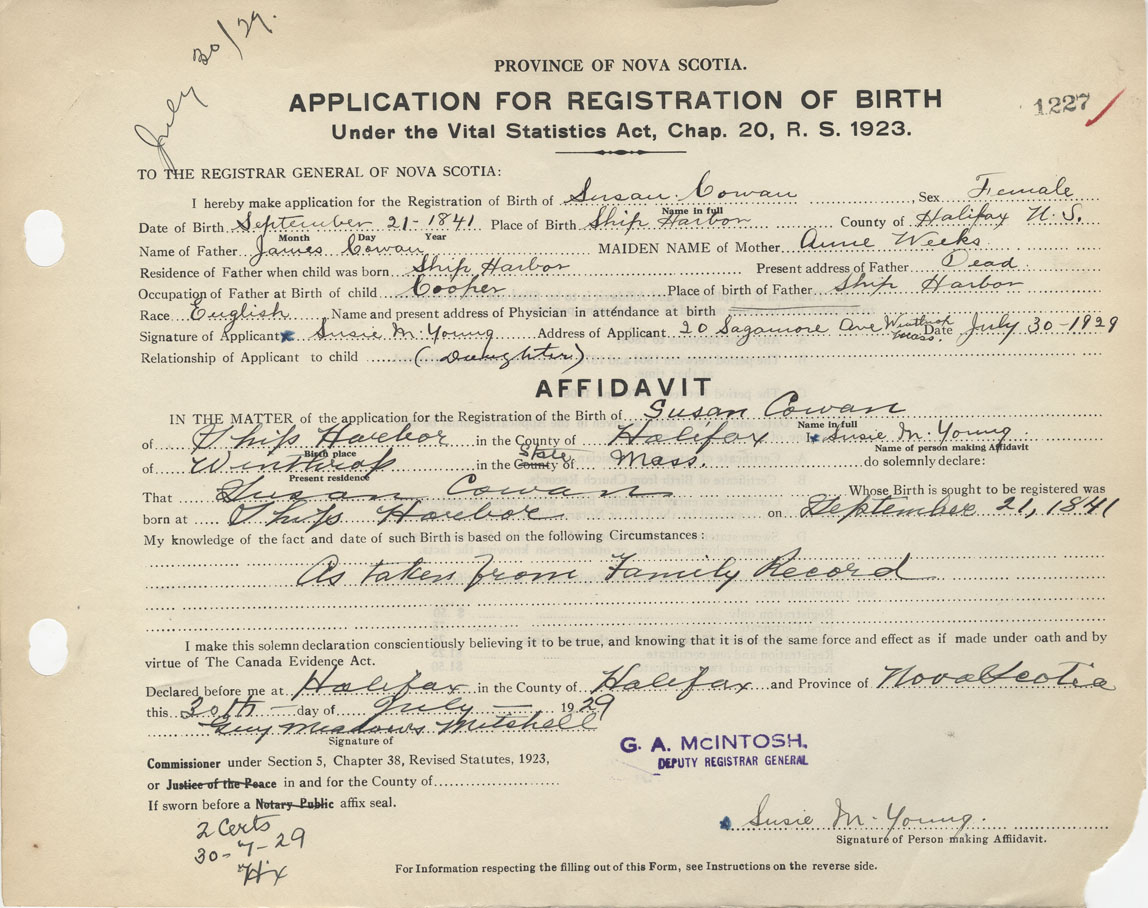 July 30/29.
PROVINCE OF NOVA SCOTIA.
APPLICATION FOR REGISTRATION OF BIRTH
1227
Under the Vital Statistics Act, Chap. 20, R. S. 1923.
TO THE REGISTRAR GENERAL OF NOVA SCOTIA:
I hereby make application for the Registration of Birth of Susan Cowan, Sex Female
Name in full
Date of Birth September 21-1841 Place of Birth Ship Harbor County of Halifax N. S.
Month Day Year
Name of Father James Cowan MAIDEN NAME of Mother Anne Weeks
Residence of Father when child was born Ship Harbor Present address of Father Dead
Occupation of Father at Birth of child Cooper Place of birth of Father Ship Harbor
Race English Name and present address of Physician in attendance at birth
Signature of Applicant x Susie M. Young Address of Applicant 20 Sagamore Ave Winthrop Mass. Date July 30-1929
Relationship of Applicant to child (Daughter)
AFFIDAVIT
IN THE MATTER of the application for the Registration of the Birth of Susan Cowan
Name in full
of Ship Harbor in the County of Halifax I x Susie M. Young.
Birth place Name of person making Affidavit
of Winthrop in the County of State Mass. do solemnly declare:
Present residence
That Susan Cowan Whose Birth is sought to be registered was
born at Ship Harbor on September 21, 1841
My knowledge of the fact and date of such Birth is based on the following Circumstances:
As taken from Family Record
I make this solemn declaration conscientiously believing it to be true, and knowing that it is of the same force and effect as if made under oath and by
virtue of The Canada Evidence Act.
Declared before me at Halifax in the County of Halifax and Province of Nova Scotia
this 30th day of July 1929
Guy Meadows Mitchell
Signature of
G. A. McINTOSH,
DEPUTY REGISTRAR GENERAL
Commissioner under Section 5, Chapter 38, Revised Statutes, 1923,
or Justice of the Peace in and for the County of
If sworn before a Notary Public affix seal.
2 Certs
30-7-29
Hx
x Susie M. Young.
Signature of Person making Affiidavit.
For Information respecting the filling out of this Form, see Instructions on the reverse side.